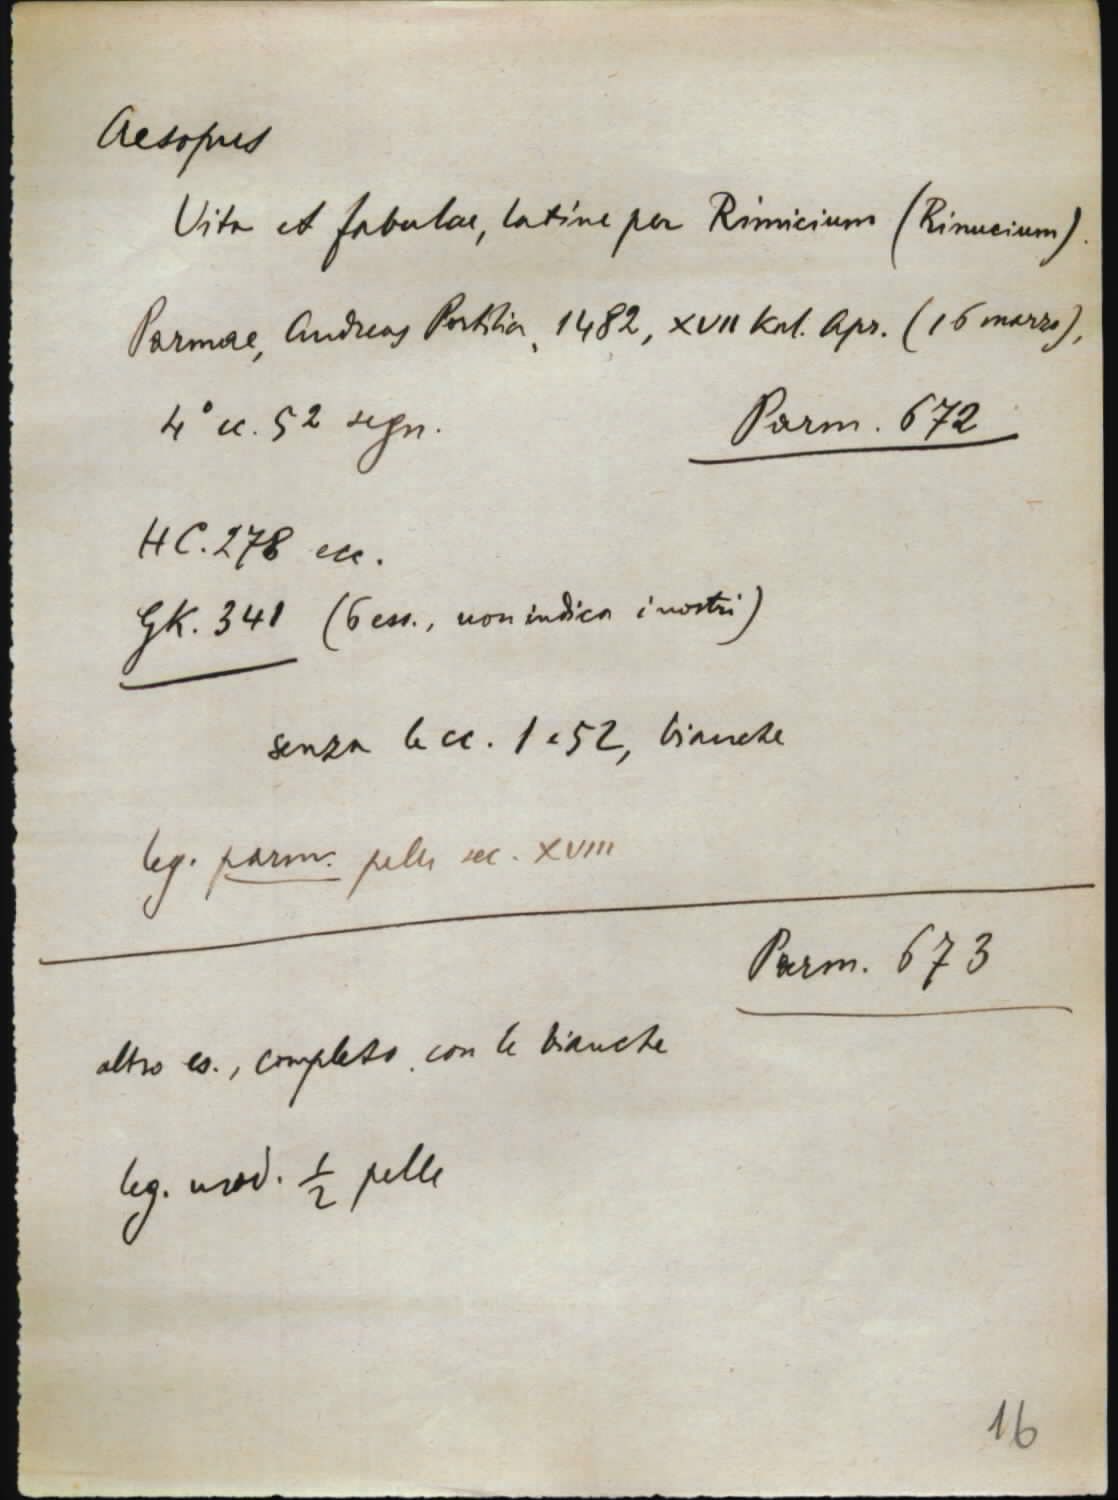 Aesopus
Vita et fabulae, latine per Rimicium (Rinucium).
Parmae, Andreas Portilia, 1482, XVII Kal. Apr. (16 marzo),
4° cc. 52 segn.
Parm. 672
HC. 278 ecc.
GK. 341 (6 ess., non indica i nostri)
senza le cc. 1 e 52, bianche
leg. parm. pelle sec. XVIII
Parm. 673
altro es., completo, con le bianche
leg. mod. 1/2 pelle
16